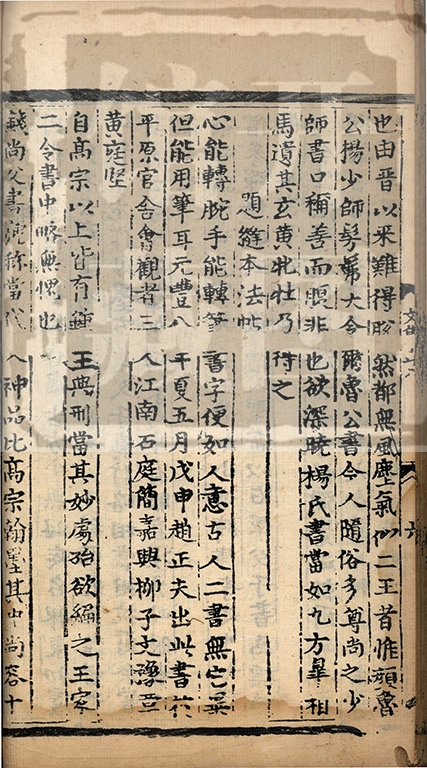 也由晋以来難得脫然都無風塵氣似二王者惟顏魯
公揚少師髣髴大令爾魯公書今人隨俗多尊尚之少
師書口稱善而腹非也欲深曉楊氏書當如九方臯相
馬遺其玄黃牝牡乃得之
題縫本法帖
心能轉腕手能轉筆書字便如人意古人二書無它異
但能用筆耳元豐八年夏五月戊申趙正夫出此書於
平原官舍會觀者三人江南石庭簡嘉興柳子文豫章
黃庭堅
自髙宗以上皆有鍾王典刑當其妙處殆欲編之王家
二令書中略無愧也
錢尚父書號稱當代入神品比髙宗翰墨其中尚容十